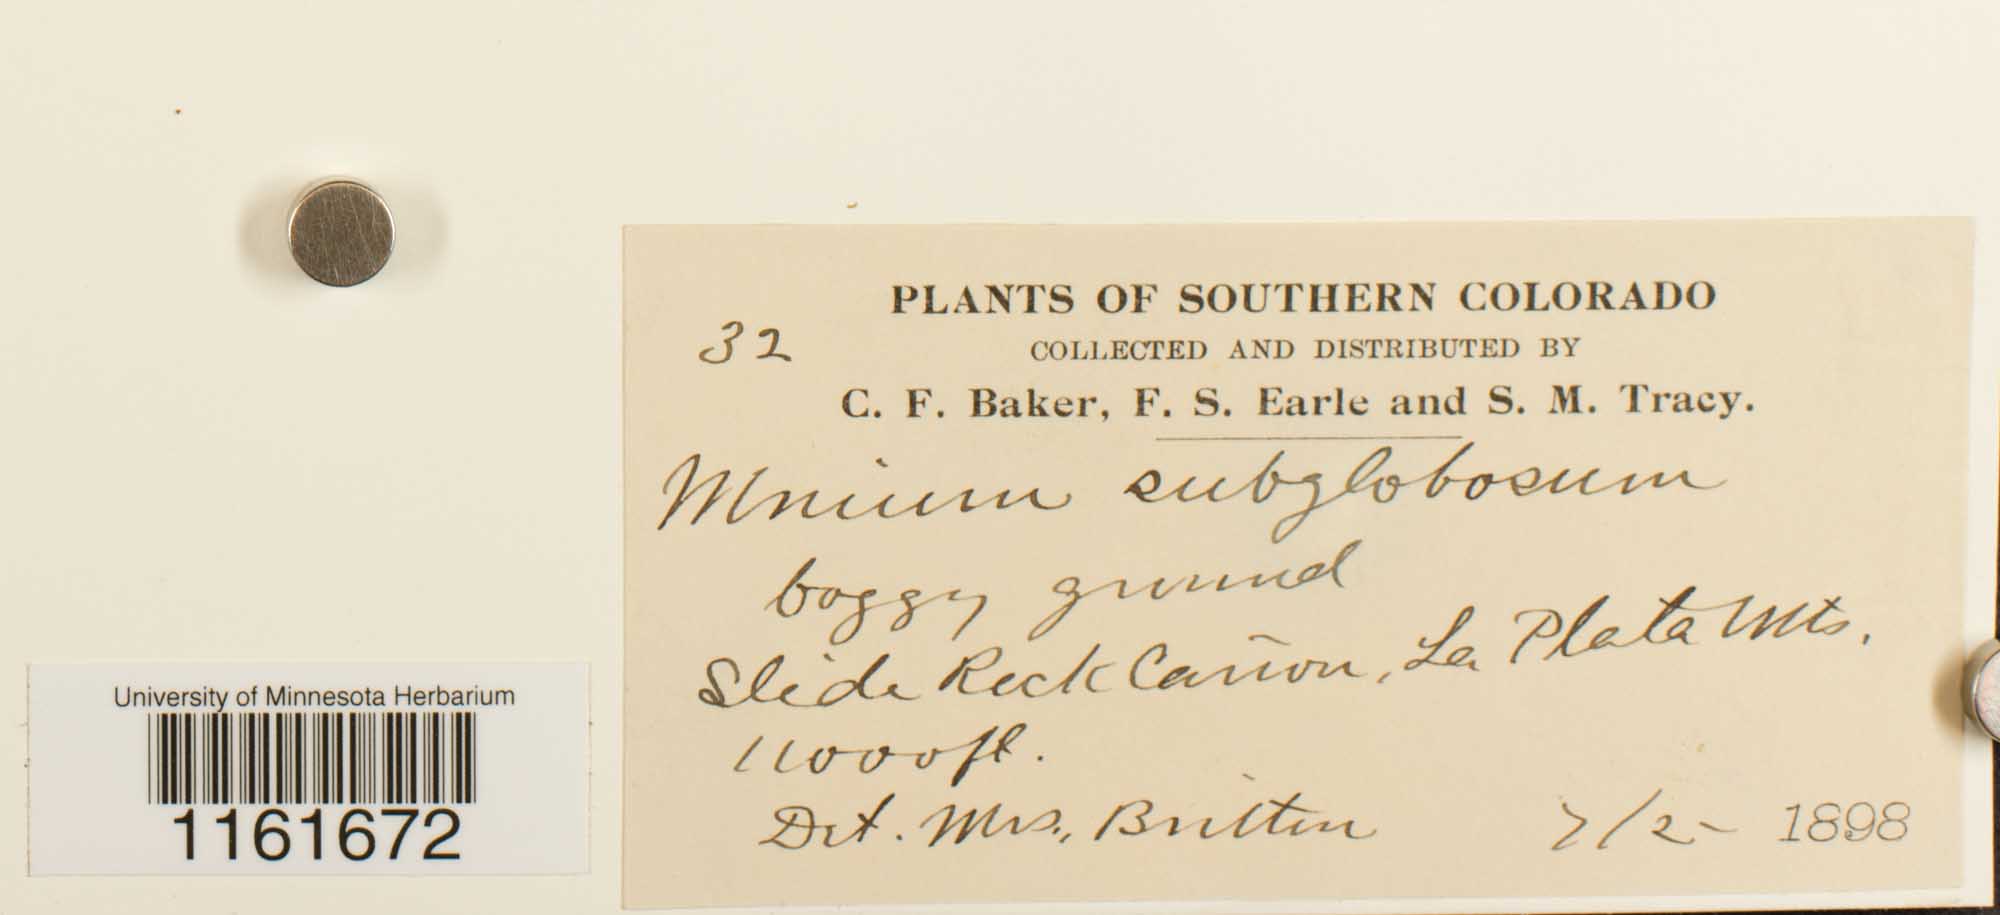 PLANTS OF SOUTHERN COLORADO
32
COLLECTED AND DISTRIBUTED BY
C. F. Baker, F. S. Earle and S. M. Tracy.
Mnium subglobosum
boggy ground
Slide Rock Cañon, La Plata Mts.
11000 ft.
Det. Mrs. Britten 7/2- 1898
University of Minnesota Herbarium
1161672